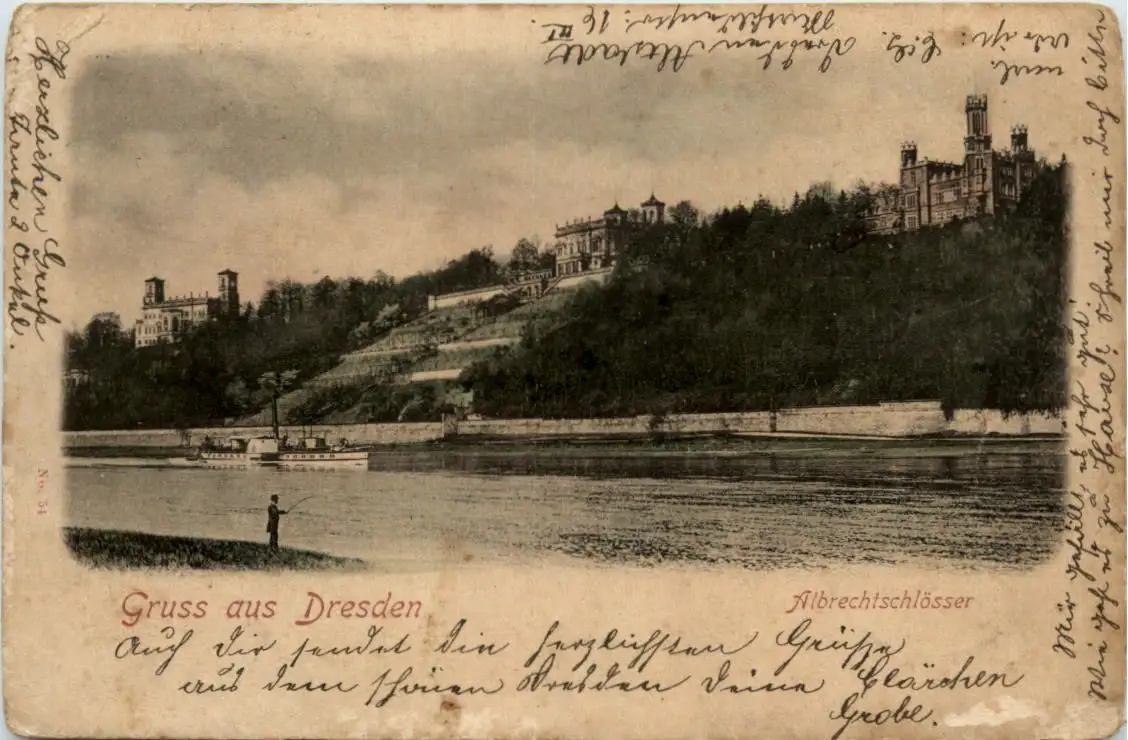 Gruss aus Dresden
Albrechtschlösser
No. 51
Auch Dir sendet die herzlichsten Grüße
aus dem schönen Dresden Deine Clärchen
Grobe.
Mir gefällt es sehr gut!
Wie geht es zu Hause? Schreib mir doch bitte
mal.
Adr.:
Dresden Altstadt
16 III
Herzlichen Gruß
Tante & Onkel.